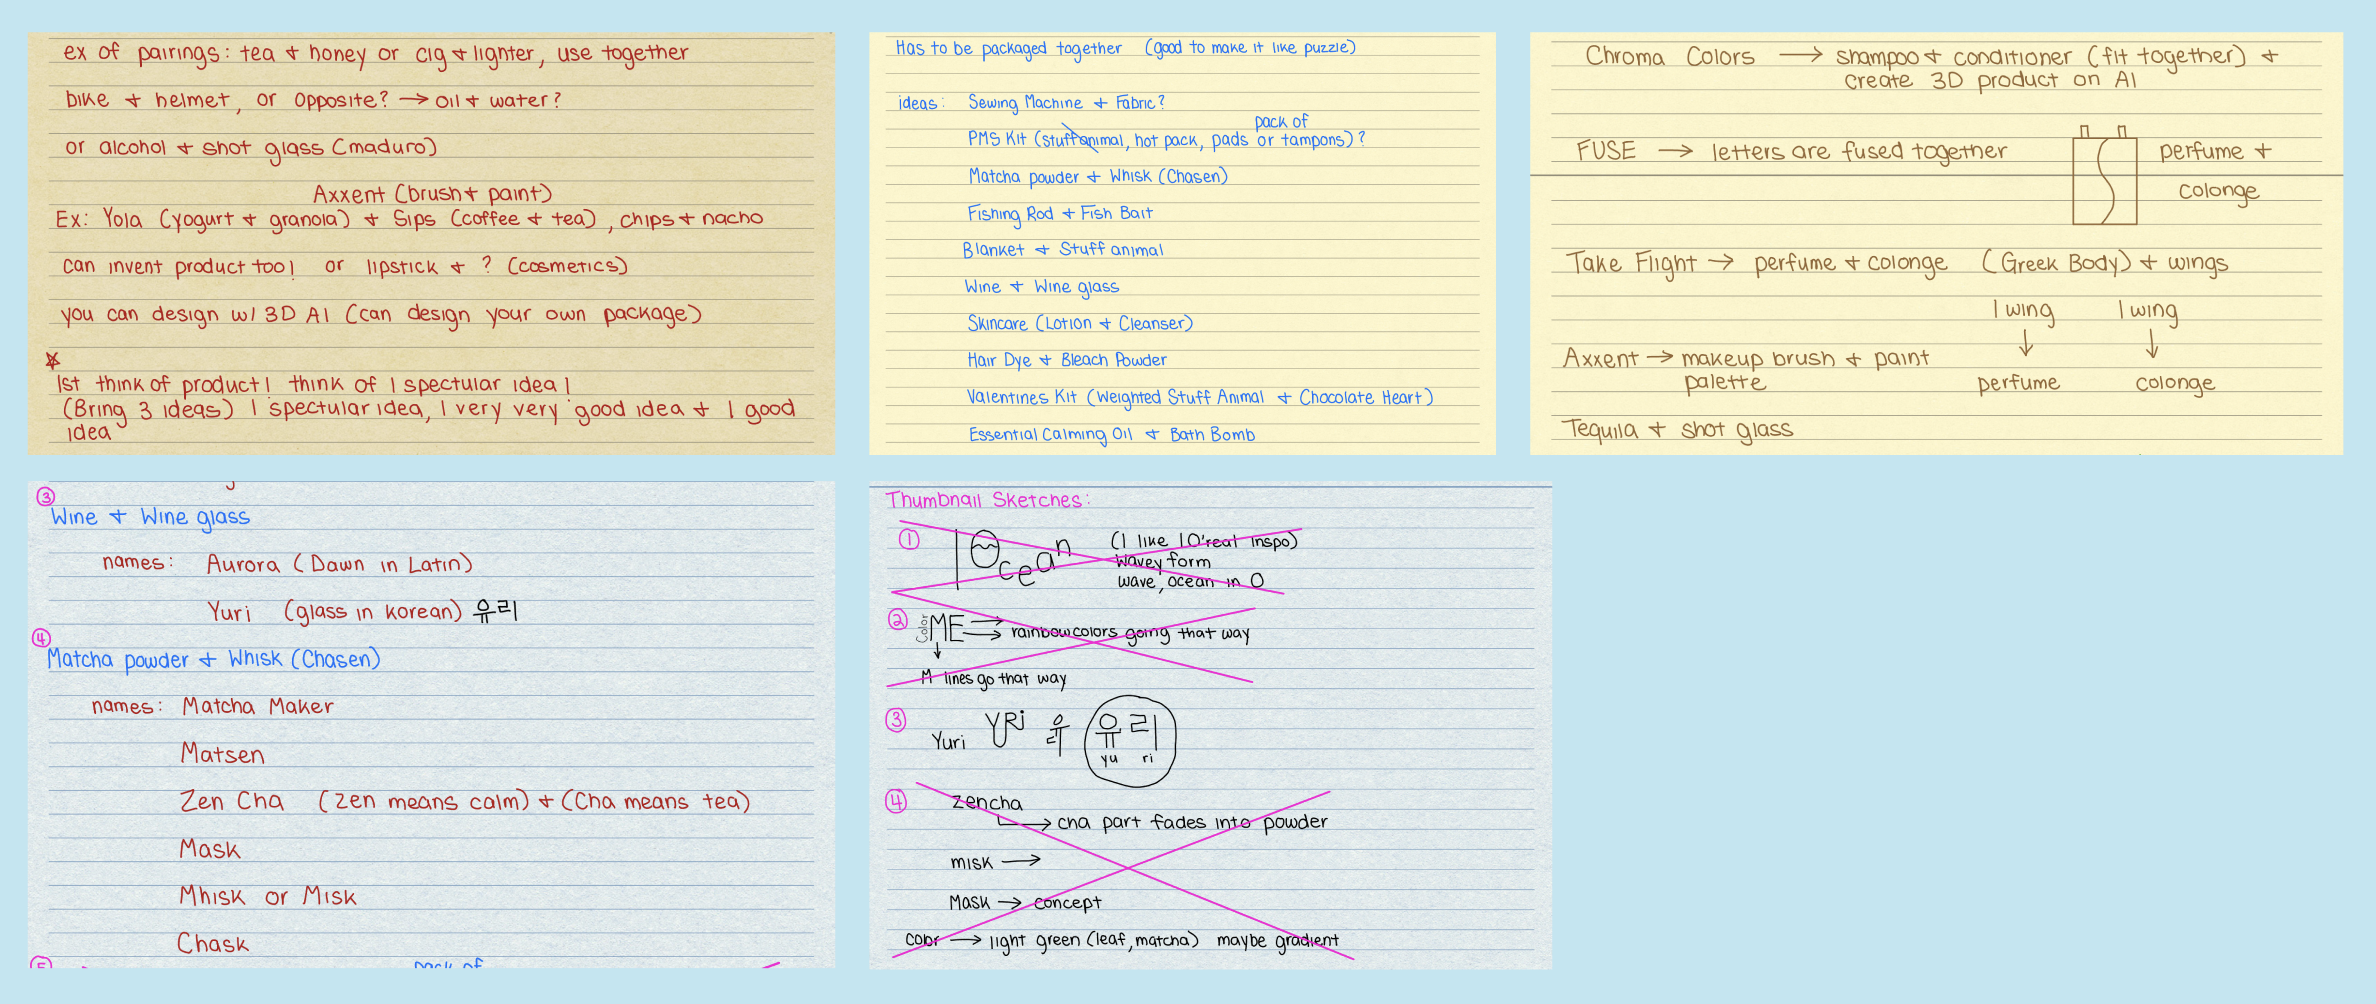 ex of pairings: tea + honey or cig + lighter, use together
bike + helmet, or opposite? → oil + water?
or alcohol + shot glass (maduro)
Axxent (brush + paint)
Ex: Yola (yogurt + granola) + Sips (coffee + tea), chips + nacho
can invent product too! or lipstick + ? (cosmetics)
you can design w/ 3D AI (can design your own package)
1st think of product! think of 1 spectular idea!
(Bring 3 ideas) 1 spectular idea, 1 very very good idea + 1 good
idea
Has to be packaged together (good to make it like puzzle)
ideas: Sewing Machine + Fabric?
pack of
PMS Kit (stuff animal, hot pack, pads or tampons)?
Matcha powder + Whisk (Chasen)
Fishing Rod + Fish Bait
Blanket + Stuff animal
Wine + Wine glass
Skincare (Lotion + Cleanser)
Hair Dye + Bleach Powder
Valentines Kit (Weighted Stuff Animal + Chocolate Heart)
Essential Calming Oil + Bath Bomb
Chroma Colors → shampoo + conditioner (fit together) +
create 3D product on AI
FUSE → letters are fused together
perfume +
colonge
Take Flight → perfume + colonge (Greek Body) + wings
1 wing 1 wing
↓ ↓
perfume colonge
Axxent → makeup brush + paint
palette
Tequila + shot glass
③
Wine + Wine glass
names: Aurora (Dawn in Latin)
Yuri (glass in korean) 유리
④
Matcha powder + Whisk (Chasen)
names: Matcha Maker
Matsen
Zen Cha (Zen means calm) + (Cha means tea)
Mask
Mhisk or Misk
Chask
pack of
Thumbnail Sketches:
① 10cean (I like 10'real inspo)
wavey form
wave, ocean in O
② Color ME → rainbow colors going that way
M lines go that way
③ Yuri YRi 유리 유리
yu ri
④ zencha
cha part fades into powder
misk →
Mask → concept
color → light green (leaf, matcha) maybe gradient